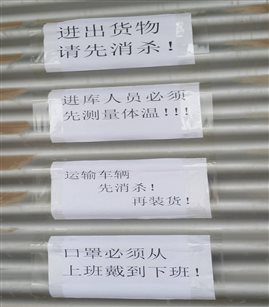 进出货物
请先消杀！
进库人员必须
先测量体温！！！
运输车辆
先消杀！
再装货！
口罩必须从
上班戴到下班！